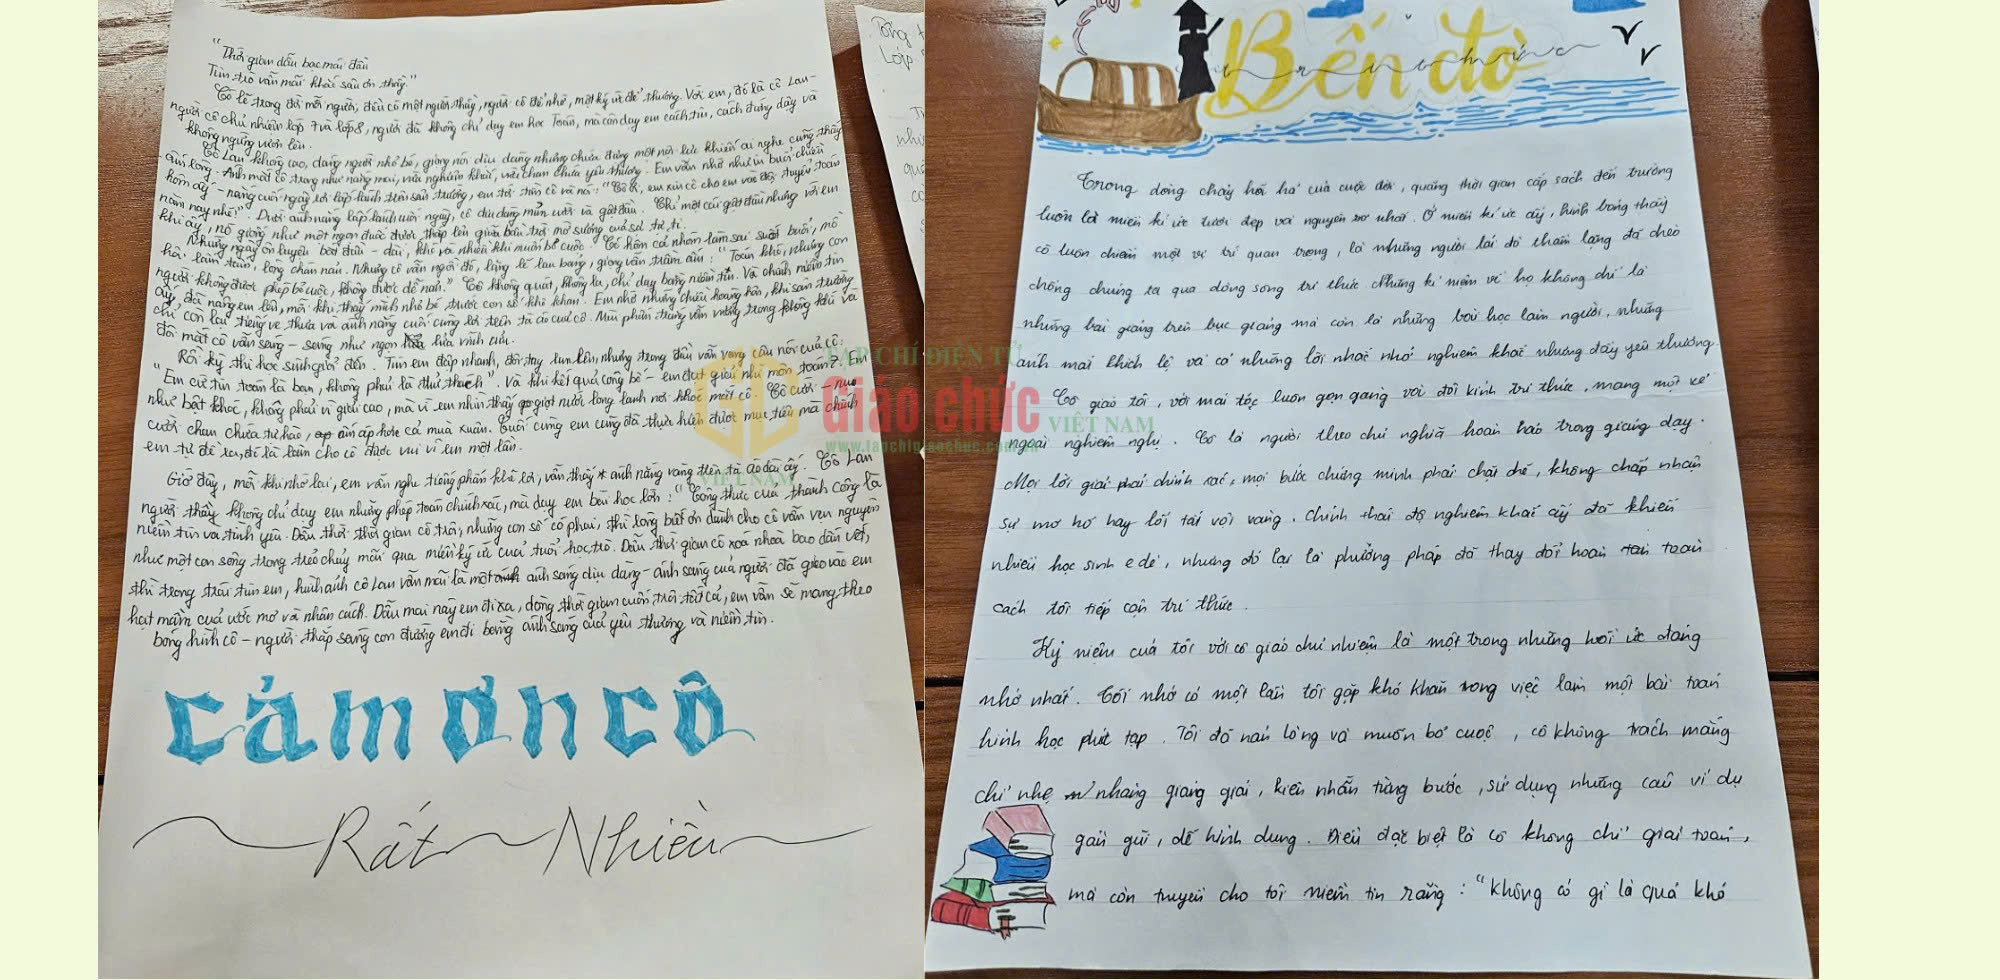 "Thời gian dẫu bạc mái đầu
Tim trò vẫn mãi khắc sâu ơn thầy."
Có lẽ trong đời mỗi người, đều có một người thầy, người cô để nhớ, một ký ức để thương. Với em, đó là cô Lan-
người cô chủ nhiệm lớp 7 và lớp 8, người đã không chỉ dạy em học Toán, mà còn dạy em cách tin, cách đứng dậy và
không ngừng vươn lên.
Cô Lan không cao, dáng người nhỏ bé, giọng nói dịu dàng nhưng chứa đựng một nội lực khiến ai nghe cũng thấy
ấm lòng. Ánh mắt cô trong như nắng mai, vừa nghiêm khắc, vừa chan chứa yêu thương. Em vẫn nhớ như in buổi chiều
hôm ấy - nắng cuối ngày rơi lấp lánh trên sân trường, em tới tìm cô và nói: "Cô ơi, em xin cô cho em vào đội tuyển toán
năm nay nhé!". Dưới ánh nắng lấp lánh cuối ngày, cô dịu dàng mỉm cười và gật đầu. Chỉ một cái gật đầu nhưng với em
khi ấy, nó giống như một ngọn đuốc được thắp lên giữa bầu trời mờ sương của sự tự ti.
Những ngày ôn luyện bắt đầu - dài, khó và nhiều khi muốn bỏ cuộc. Có hôm cả nhóm làm sai suốt buổi, mồ
hôi lấm tấm, lòng chán nản. Nhưng cô vẫn ngồi đó, lặng lẽ lau bảng, giọng vẫn trầm ấm: "Toán khó, nhưng con
người không được phép bỏ cuộc, không được dễ nản." Cô không quát, không la, chỉ dạy bằng niềm tin. Và chính niềm tin
ấy, đã nâng em lên, mỗi khi thấy mình nhỏ bé trước con số khô khan. Em nhớ những chiều hoàng hôn, khi sân trường
chỉ còn lại tiếng ve thưa và ánh nắng cuối cùng rơi trên tà áo của cô. Mùi phấn trắng vẫn vương trong không khí và
đôi mắt cô vẫn sáng - sáng như ngọn lửa vĩnh cửu.
Rồi kỳ thi học sinh giỏi đến. Tim em đập nhanh, đôi tay run lên, nhưng trong đầu vẫn vang câu nói của cô:
"Em cứ tin toán là bạn, không phải là thử thách". Và khi kết quả công bố - em đạt giải nhì môn toán? Em
như bật khóc, không phải vì giải cao, mà vì em nhìn thấy giọt nước long lanh nơi khóe mắt cô. Cô cười - nụ
cười chan chứa tự hào, ấm áp hơn cả mùa xuân. Cuối cùng em cũng đã thực hiện được mục tiêu mà chính
em tự đề ra, đó là làm cho cô được vui vì em một lần.
Giờ đây, mỗi khi nhớ lại, em vẫn nghe tiếng phấn khẽ rơi, vẫn thấy ánh nắng vàng trên tà áo dài ấy. Cô Lan
người thầy không chỉ dạy em những phép toán chính xác, mà dạy em bài học lớn: "Công thức của thành công là
niềm tin và tình yêu. Dẫu thời thời gian có trôi, những con số có phai, thì lòng biết ơn dành cho cô vẫn vẹn nguyên
như một con sông trong trẻo chảy mãi qua miền ký ức của tuổi học trò. Dẫu thời gian có xoá nhoà bao dấu vết,
thì trong trái tim em, hình ảnh cô Lan vẫn mãi là một ánh sáng dịu dàng - ánh sáng của người đã gieo vào em
hạt mầm của ước mơ và nhân cách. Dẫu mai này em đi xa, dòng thời gian cuốn trôi tất cả, em vẫn sẽ mang theo
bóng hình cô - người thắp sáng con đường em đi bằng ánh sáng của yêu thương và niềm tin.
cảm ơn cô
Rất Nhiều
Lớp
Bến đò
tri thức
Trong dòng chảy hối hả của cuộc đời, quãng thời gian cắp sách đến trường
luôn là miền kí ức tươi đẹp và nguyên sơ nhất. Ở miền kí ức ấy, hình bóng thầy
cô luôn chiếm một vị trí quan trọng, là những người lái đò thầm lặng đã chèo
chống chúng ta qua dòng sông tri thức. Những kỉ niệm về họ không chỉ là
những bài giảng trên bục giảng mà còn là những bài học làm người, những
ánh mắt khích lệ và cả những lời nhắc nhở nghiêm khắc nhưng đầy yêu thương.
Cô giáo tôi, với mái tóc luôn gọn gàng với đôi kính tri thức, mang một vẻ
ngoài nghiêm nghị. Cô là người theo chủ nghĩa hoàn hảo trong giảng dạy.
Mọi lời giải phải chính xác, mọi bước chứng minh phải chặt chẽ, không chấp nhận
sự mơ hồ hay lối tắt vội vàng. Chính thái độ nghiêm khắc ấy đã khiến
nhiều học sinh e dè, nhưng đó lại là phương pháp đã thay đổi hoàn toàn toàn
cách tôi tiếp cận tri thức.
Kỷ niệm của tôi với cô giáo chủ nhiệm là một trong những hồi ức đáng
nhớ nhất. Tôi nhớ có một lần tôi gặp khó khăn trong việc làm một bài toán
hình học phức tạp. Tôi đã nản lòng và muốn bỏ cuộc, cô không trách mắng
chỉ nhẹ nhàng giảng giải, kiên nhẫn từng bước, sử dụng những câu ví dụ
gần gũi, dễ hình dung. Điều đặc biệt là cô không chỉ giải toán,
mà còn truyền cho tôi niềm tin rằng: "Không có gì là quá khó
TẠP CHÍ ĐIỆN TỬ
Giáo chức
VIỆT NAM
www.tapchigiaochuc.com.vn
VIỆT NAM